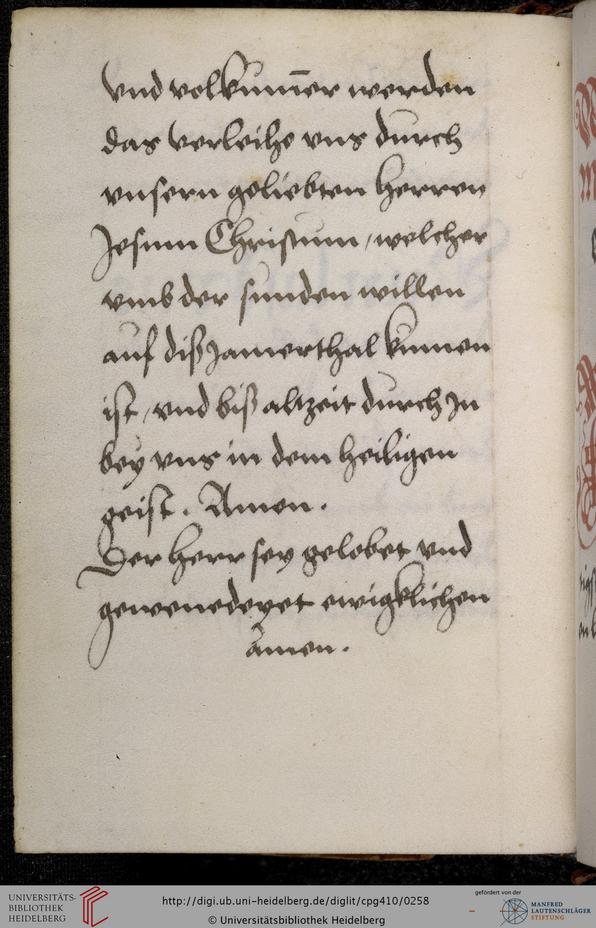 vnd volkum̅er werden
das verleihe vns durch
vnsern geliebten herren
Jesum Christum, welcher
vmb der sunden willen
auf diß Jamerthal kumen
ist, vnd biß altzeit durch Jn
bey vns in dem heiligen
geist. Amen.
Der herr sey gelobet vnd
gewenedeyet ewigklichen
amen.
UNIVERSITÄTS-
BIBLIOTHEK
HEIDELBERG
http://digi.ub.uni-heidelberg.de/diglit/cpg410/0258
© Universitätsbibliothek Heidelberg
gefördert von der
MANFRED
LAUTENSCHLÄGER
STIFTUNG